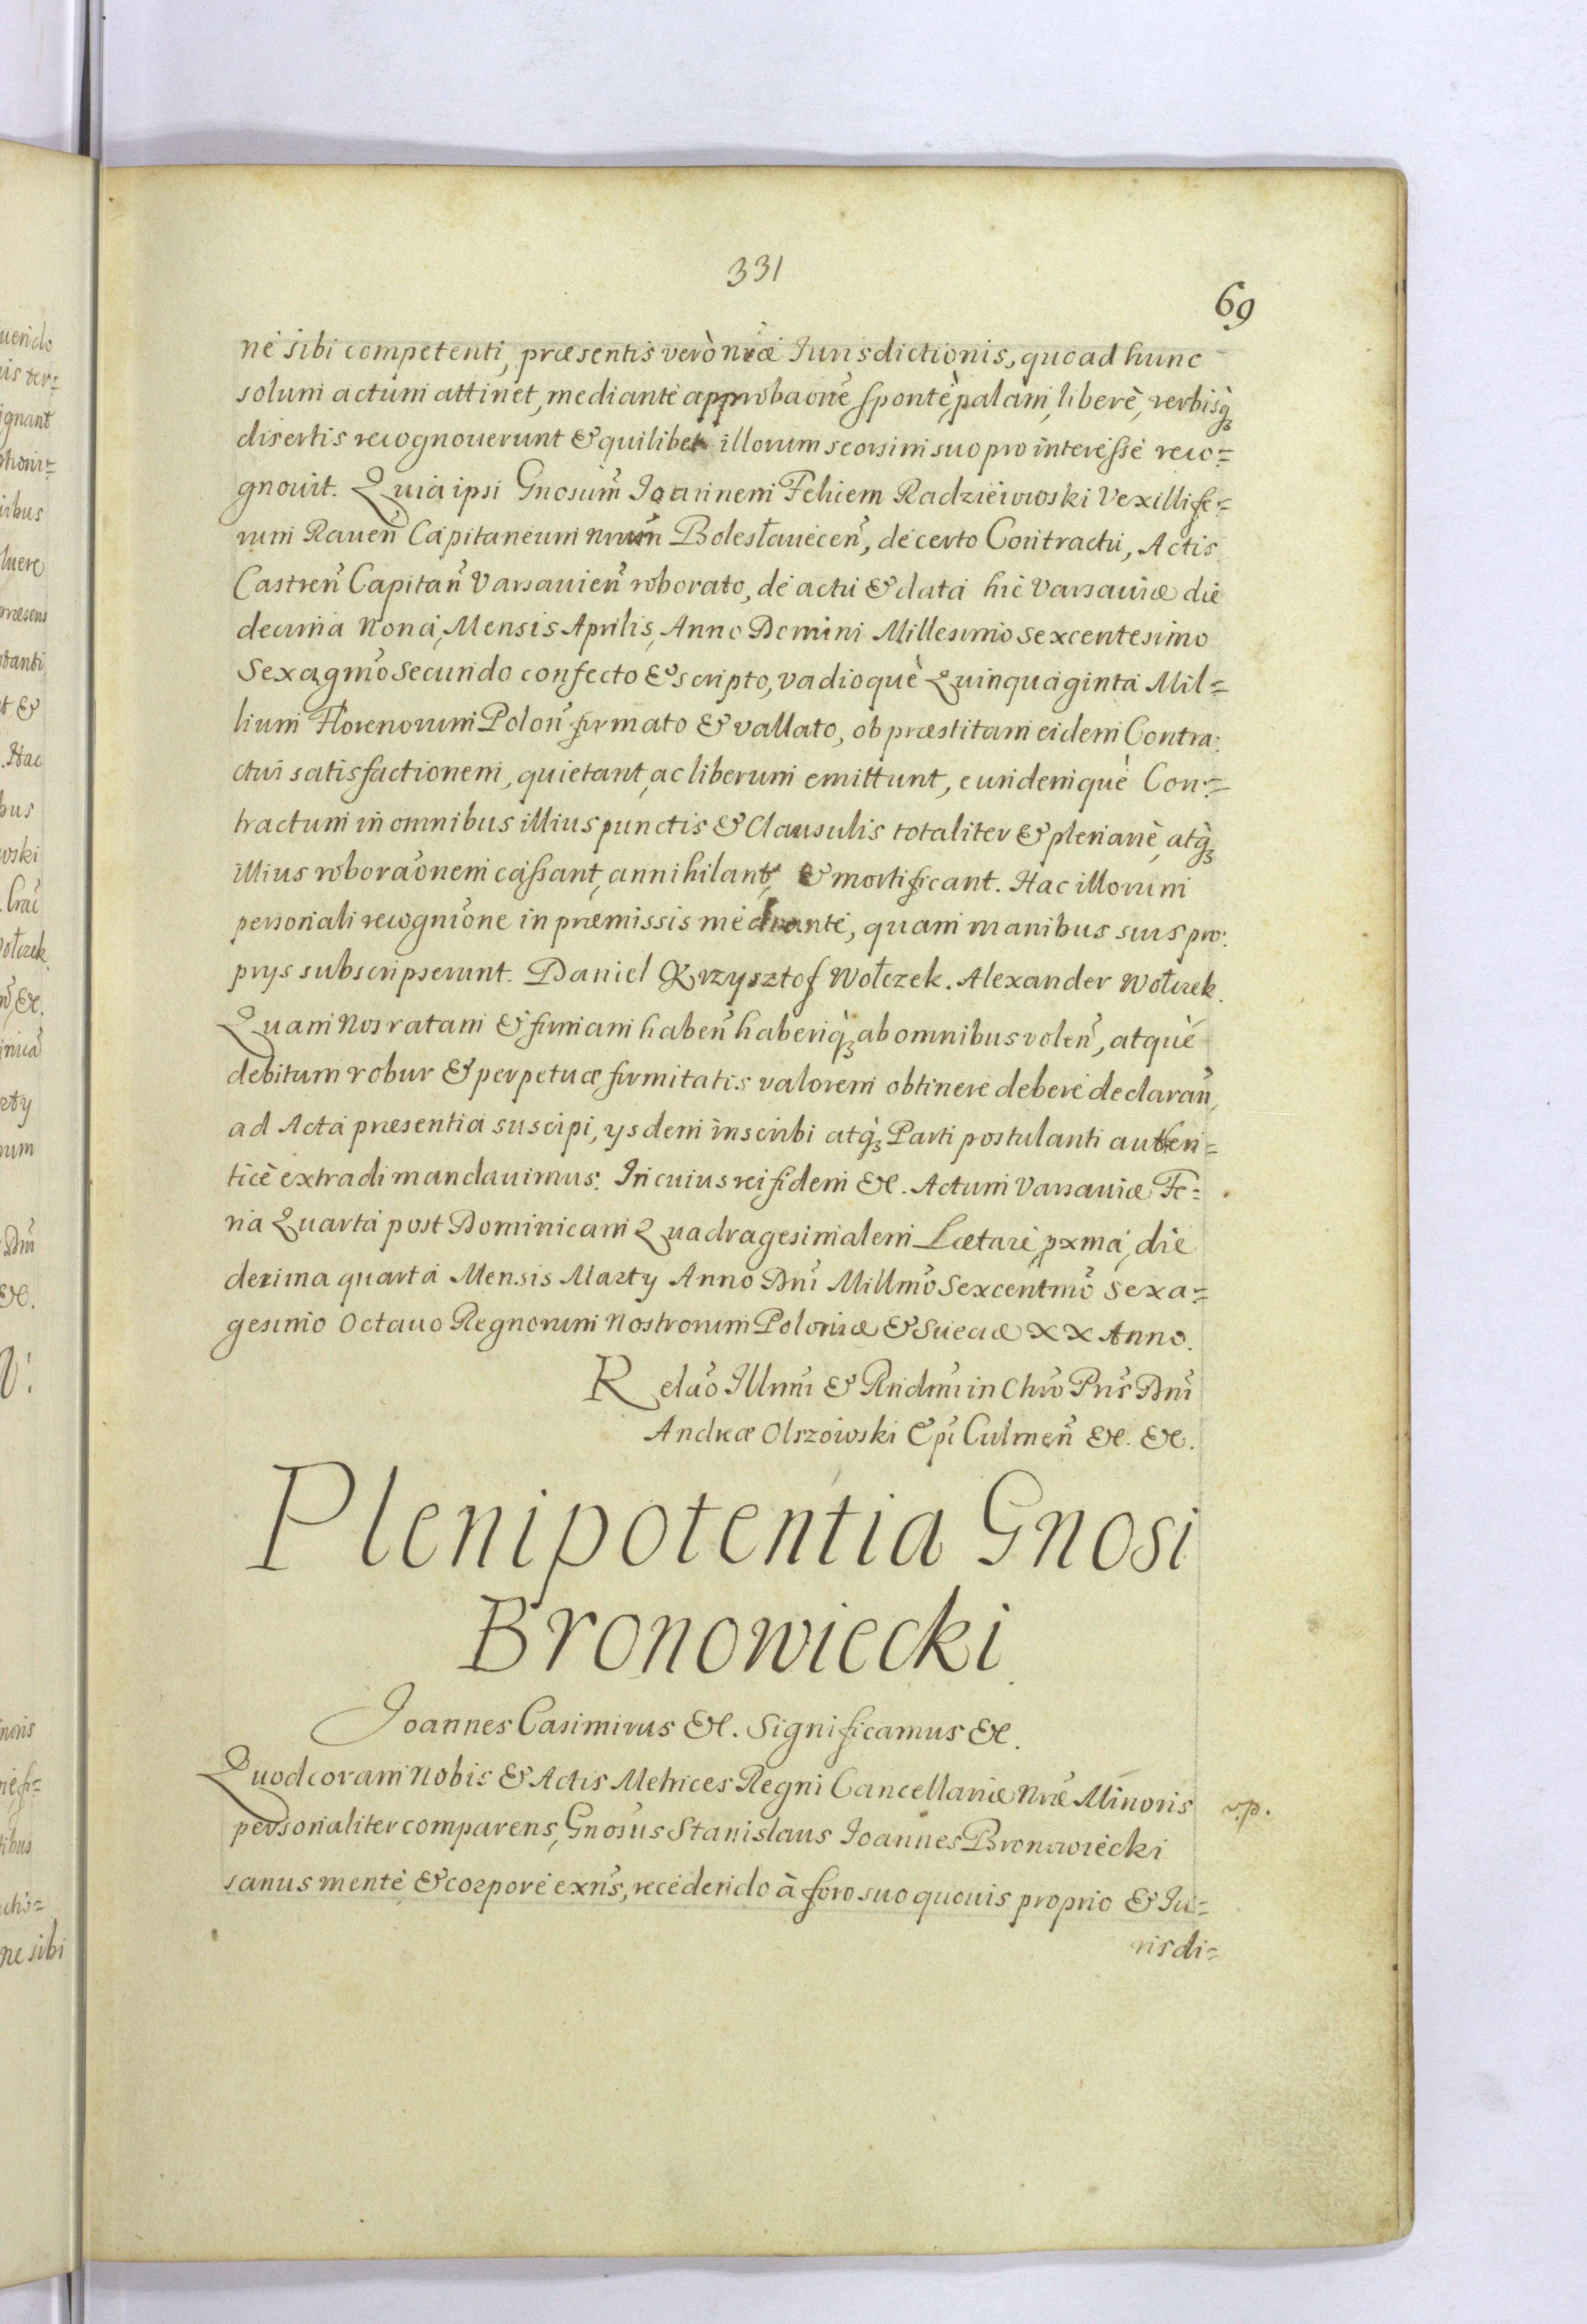 331
69
nè sibi competenti, præsentis verò nræ Iurisdictionis, quoad hunc
solum actum attinet, mediante approbaonē spontè, palàm, liberè, verbisq̃
disertis recognoverunt & quilibet illorum seorsim suo pro interesse reco=
gnovit. Quia ipsi Gnosum̃ Ioannem Felicem Radzieiowski Vexillife=
rum Raven̄ Capitaneum nrum̃ Bolesłavecen̄, de certo Contractu, Actis
Castren̄ Capitan̄ Varsavien̄ roborato, de actu & data hìc Varsaviæ die
decima nona, Mensis Aprilis, Anno Domini Millesimo sexcentesimo
Sexagm̃o secundo confecto & scripto, vadioquè Quinquaginta Mil=
lium Florenorum Polon̄ firmato & vallato, ob præstitam eidem Contra:
ctui satisfactionem, quietant, ac liberum emittunt, eundemquè Con:=
tractum in omnibus illius punctis & Clausulis totaliter & plenariè, atq̃
illius roboraōnem cassant, annihilant, & mortificant. Hac illorum
personali recogniōne in præmissis mediante, quam manibus suis pro:
prys subscripserunt. Daniel Krzysztof Wołczek. Alexander Wołczek.
Quam Nos ratam & firmam haben̄ haberiq̃ ab omnibus volen̄, atquè
debitum robur & perpetuæ firmitatis valorem obtinere debere declaran̄,
ad Acta præsentia suscipi, ysdem inscribi atq̃ Parti postulanti authen=
ticè extradi mandavimus. In cuius rei fidem &c. Actum Varsaviæ Fe=
ria Quarta post Dominicam Quadragesimalem Lætare pxma, die
decima quarta Mensis Marty Anno Dni Millmo Sexcentmo Sexa=
gesimo Octavo Regnorum Nostrorum Poloniæ & Sueciæ XX Anno.
Relaō Illmi & Rndmi in Chro Pris Dni
Andreæ Olszowski Epi Culmen̄ &c. &c.
Plenipotentia Gnosi
Bronowiecki
Joannes Casimirus &c. Significamus &c.
Quod coram Nobis & Actis Metrices Regni Cancellariæ Nræ Minoris
v.p.
personaliter comparens, Gnosus Stanislaus Joannes Bronowiecki
sanus mente & corpore exns, recedendo à foro suo quovis proprio & Iu=
risdi=